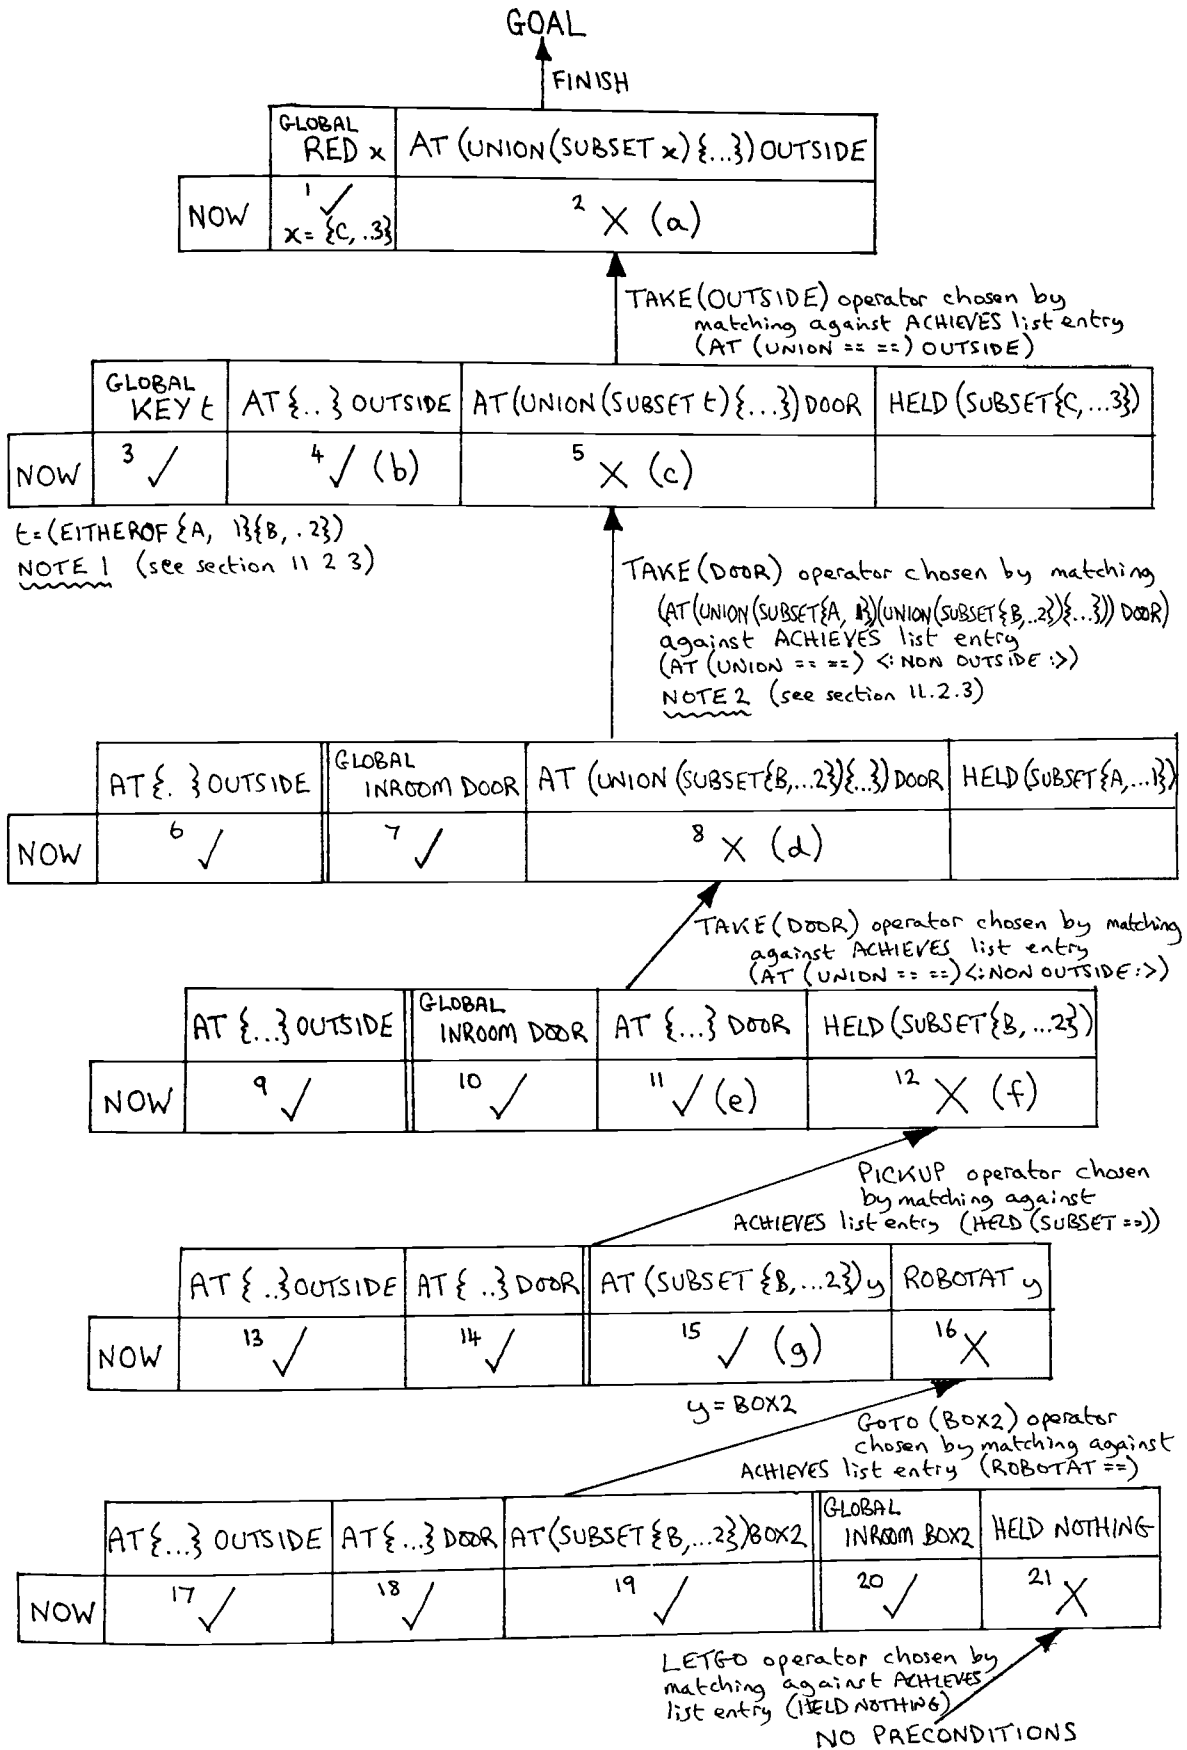 GOAL
FINISH
GLOBAL
RED x
AT (UNION (SUBSET x) {...}) OUTSIDE
NOW
1 ✓
x = {C, .3}
2 X (a)
TAKE (OUTSIDE) operator chosen by
matching against ACHIEVES list entry
(AT (UNION == ==) OUTSIDE)
GLOBAL
KEY t
AT {..} OUTSIDE
AT (UNION (SUBSET t) {...}) DOOR
HELD (SUBSET {C, ...3})
NOW
3 ✓
4 ✓ (b)
5 X (c)
t = (EITHEROF {A, 1}{B, . 2})
NOTE 1 (see section 11 2 3)
TAKE (DOOR) operator chosen by matching
(AT (UNION (SUBSET {A, 1}) (UNION (SUBSET {B, ..2}) {...})) DOOR)
against ACHIEVES list entry
(AT (UNION == ==) <: NON OUTSIDE :>)
NOTE 2 (see section 11.2.3)
AT {. } OUTSIDE
GLOBAL
INROOM DOOR
AT (UNION (SUBSET {B, ...2}) {...}) DOOR
HELD (SUBSET {A, ...1})
NOW
6 ✓
7 ✓
8 X (d)
TAKE (DOOR) operator chosen by matching
against ACHIEVES list entry
(AT (UNION == ==) <: NON OUTSIDE :>)
AT {...} OUTSIDE
GLOBAL
INROOM DOOR
AT {...} DOOR
HELD (SUBSET {B, ...2})
NOW
9 ✓
10 ✓
11 ✓ (e)
12 X (f)
PICKUP operator chosen
by matching against
ACHIEVES list entry (HELD (SUBSET ==))
AT { ..} OUTSIDE
AT { ..} DOOR
AT (SUBSET {B, ...2}) y
ROBOTAT y
NOW
13 ✓
14 ✓
15 ✓ (g)
16 X
y = BOX2
GOTO (BOX2) operator
chosen by matching against
ACHIEVES list entry (ROBOTAT ==)
AT {...} OUTSIDE
AT {...} DOOR
AT (SUBSET {B, ...2}) BOX2
GLOBAL
INROOM BOX2
HELD NOTHING
NOW
17 ✓
18 ✓
19 ✓
20 ✓
21 X
LETGO operator chosen by
matching against ACHIEVES
list entry (HELD NOTHING)
NO PRECONDITIONS